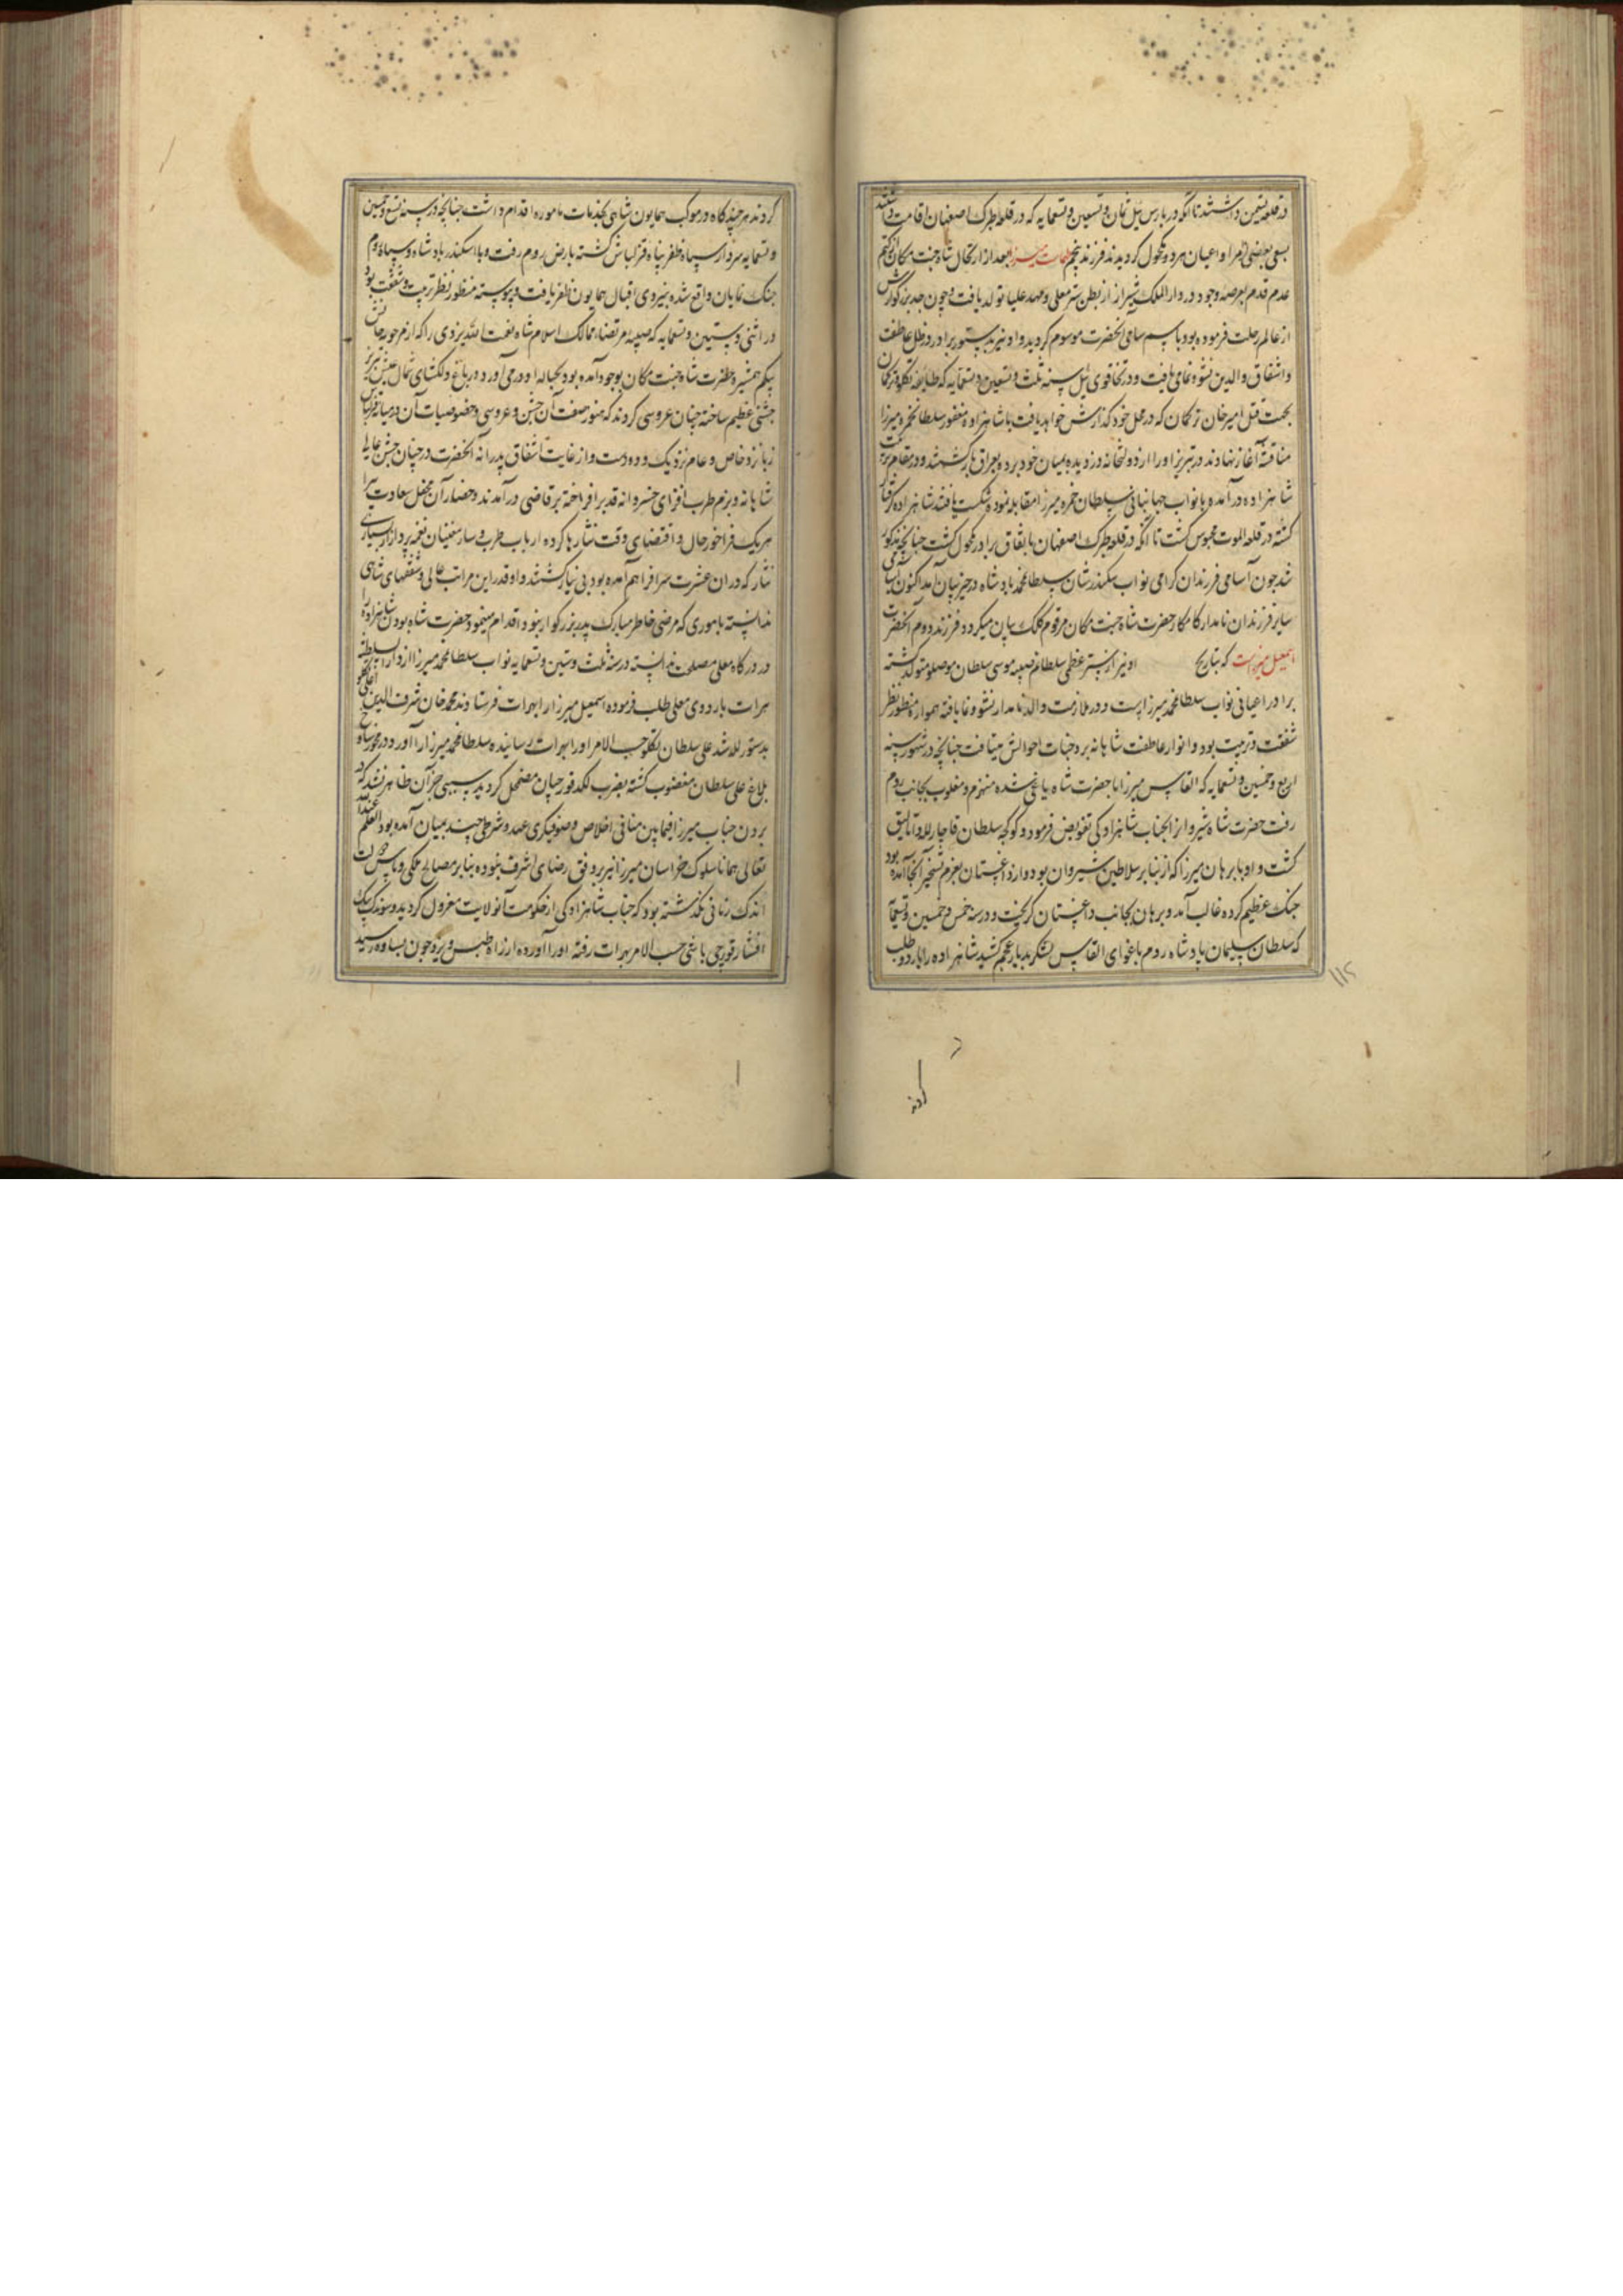 در قلعه تعین داشتند تا آنکه در بارس ئیل ثمان و تسعین و تسعمایه که در قلعه طبرک اصفهان اقامت داشتند
بسعی بعضی امرا و اعیان هر دو مکحول گردیدند فرزند پنجم طهماسب میرزا بعد از ارتحال شاه جنت مکان از کتم
عدم قدم بعرصه وجود در دار الملک شیراز از بطن ستر معلی و مهد علیا تولد یافت و چون جد بزرگوارش
از عالم رحلت فرموده بود باسم سامی آنحضرت موسوم گردید و او نیز بدستور برادر در ظل عاطفت
و اشفاق والدین نشو و نمای یافت و در تخاقوی ئیل سنه ثلث و تسعین و تسعمایه که طایفه تکلو و ترکمان
بجهت قتل امیر خان ترکمان که در محل خود گذارش خواهد یافت با شاهزاده مغفور سلطان حمزه میرزا
مناقشه آغاز نهادند در تبریز او را از دولتخانه دزدیده بمیان خود برده بعراق برگشتند و در مقام
شاهزاده درآمده با نواب جهانبانی سلطان حمزه میرزا مقابله نموده شکست یافتند شاهزاده گرفتار
گشته در قلعه الموت محبوس گشت تا آنکه در قلعه طبرک اصفهان باتفاق برادر مکحول گشت چنانچه مذکور
شد چون اسامی فرزندان گرامی نواب سکندرشان سلطان محمد پادشاه در حیز بیان آمد اکنون اسامی
سایر فرزندان نامدار کامکار حضرت شاه جنت مکان مرقوم کلک بیان میگردد فرزند دوم آنحضرت
اسمعیل میرزاست که بتاریخ او نیز از ستر عظمی سلطانم صبیه موسی سلطان موصلو متولد گشته
برادر اعیانی نواب سلطان محمد میرزا است و در ملازمت والد نامدار نشو و نما یافته همواره منظور نظر
شفقت و تربیت بود و انوار عاطفت شاهانه بر وجنات احوالش میتافت چنانچه در شهور سنه
اربع و خمسین و تسعمایه که القاس میرزا با حضرت شاه یاغی شده منهزم و مغلوب بجانب روم
رفت حضرت شاه شیروانرا بجناب شاهزادگی تفویض فرمود و کوکجه سلطان قاجار لله و اتالیق
گشت و او با برهان میرزا که از نبایر سلاطین شیروان بود و از داغستان بعزم تسخیر آنجا آمده بود
جنگ عظیم کرده غالب آمد و برهان بجانب داغستان گریخت و در سنه خمس و خمسین و تسعمایه
که سلطان سلیمان پادشاه روم باغوای القاس لشکر بدیار عجم کشید شاهزاده را باردو طلب
۱۱۵
کردند
کردند هر چند گاه در موکب همایون شاهی بخدمات مامور و اقدام داشت چنانچه در سنه تسع و خمسین
و تسعمایه سردار سپاه ظفر پناه قزلباش گشته بارض روم رفت و با اسکندر پادشاه و سپاه روم
جنگ نمایان واقع شده بنیروی اقبال همایون ظفر یافت و پیوسته منظور نظر تربیت و شفقت بود
در اثنی و ستین و تسعمایه که صبیه مرتضاء ممالک اسلام شاه نعمت الله یزدی را که از حورخانش
بیگم همشیره حضرت شاه جنت مکان بوجود آمده بود بحباله او در می آورد در باغ دلگشای شمال تبریز
جشنی عظیم ساخته چنان عروسی کردند که هنوز صفت آن جشن و عروسی و خصوصیات آن در میان قزلباش
زبانزد خاص و عام نزدیک و دورست و از غایت اشفاق پدرانه آنحضرت در چنان جشن عالی
شاهانه و بزم طرب افزای خسروانه قد برافراخته برقاضی درآمدند و حضار آن محفل سعادت
هر یک فراخور حال و اقتضای وقت نثارها کرده ارباب طرب و سازمغنیان نغمه پرداز از بسیاری
نثار که در ان عشرت سرا فراهم آمده بود بی نیاز گشتند و او قدر این مراتب عالی و شفقتهای شاهی
ندانسته باموری که مرضی خاطر مبارک پدر بزرگوار نبود اقدام مینمود و حضرت شاه بودن شاهزاده را
در درگاه معلی مصلحت ندانسته در سنه ثلث و ستین و تسعمایه نواب سلطان محمد میرزا از دار السلطنه
هرات باردوی معلی طلب فرموده اسمعیل میرزا را بهرات فرستادند محمد خان شرف الدین اغلی تکلو
بدستور لله شد علی سلطان تکلو حسب الامر او را بهرات رسانیده سلطان محمد میرزا را آورد و در
بلاغ علی سلطان مغضوب گشته بضرب لگد قورچیان مضمحل گردید سببی جز آن ظاهر نشد که
بردن جناب میرزا فیمابین منافی اخلاص و صوفیگری عهد و شرطی چند بمیان آمده بود العلم عند الله
تعالی همانا سلوک خراسان میرزا نیز بر وفق رضای اشرف نبوده بنابر مصالح ملکی و پاس
اندک زمانی نگذشته بود که جناب شاهزادگی از حکومت آنولایت معزول گردید و سوندک بیک
افشار قورچی باشی حسب الامر بهرات رفته او را آورده از راه طبس و یزد چون بساوه رسید